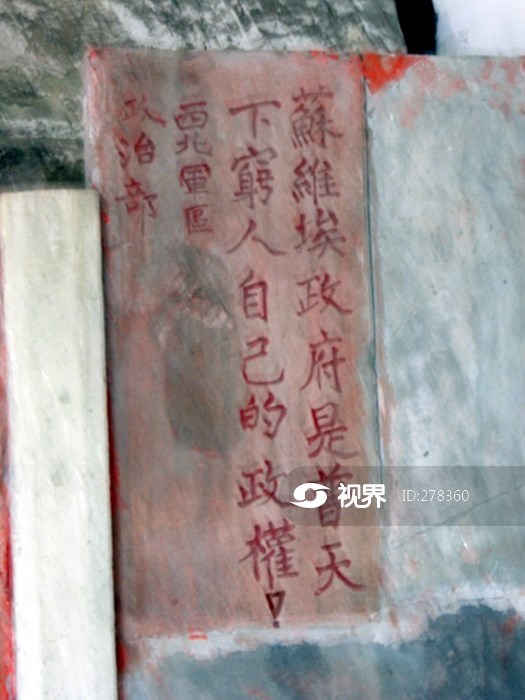 蘇維埃政府是普天
下窮人自己的政權！
西北軍區
政治部
视界 ID:278360